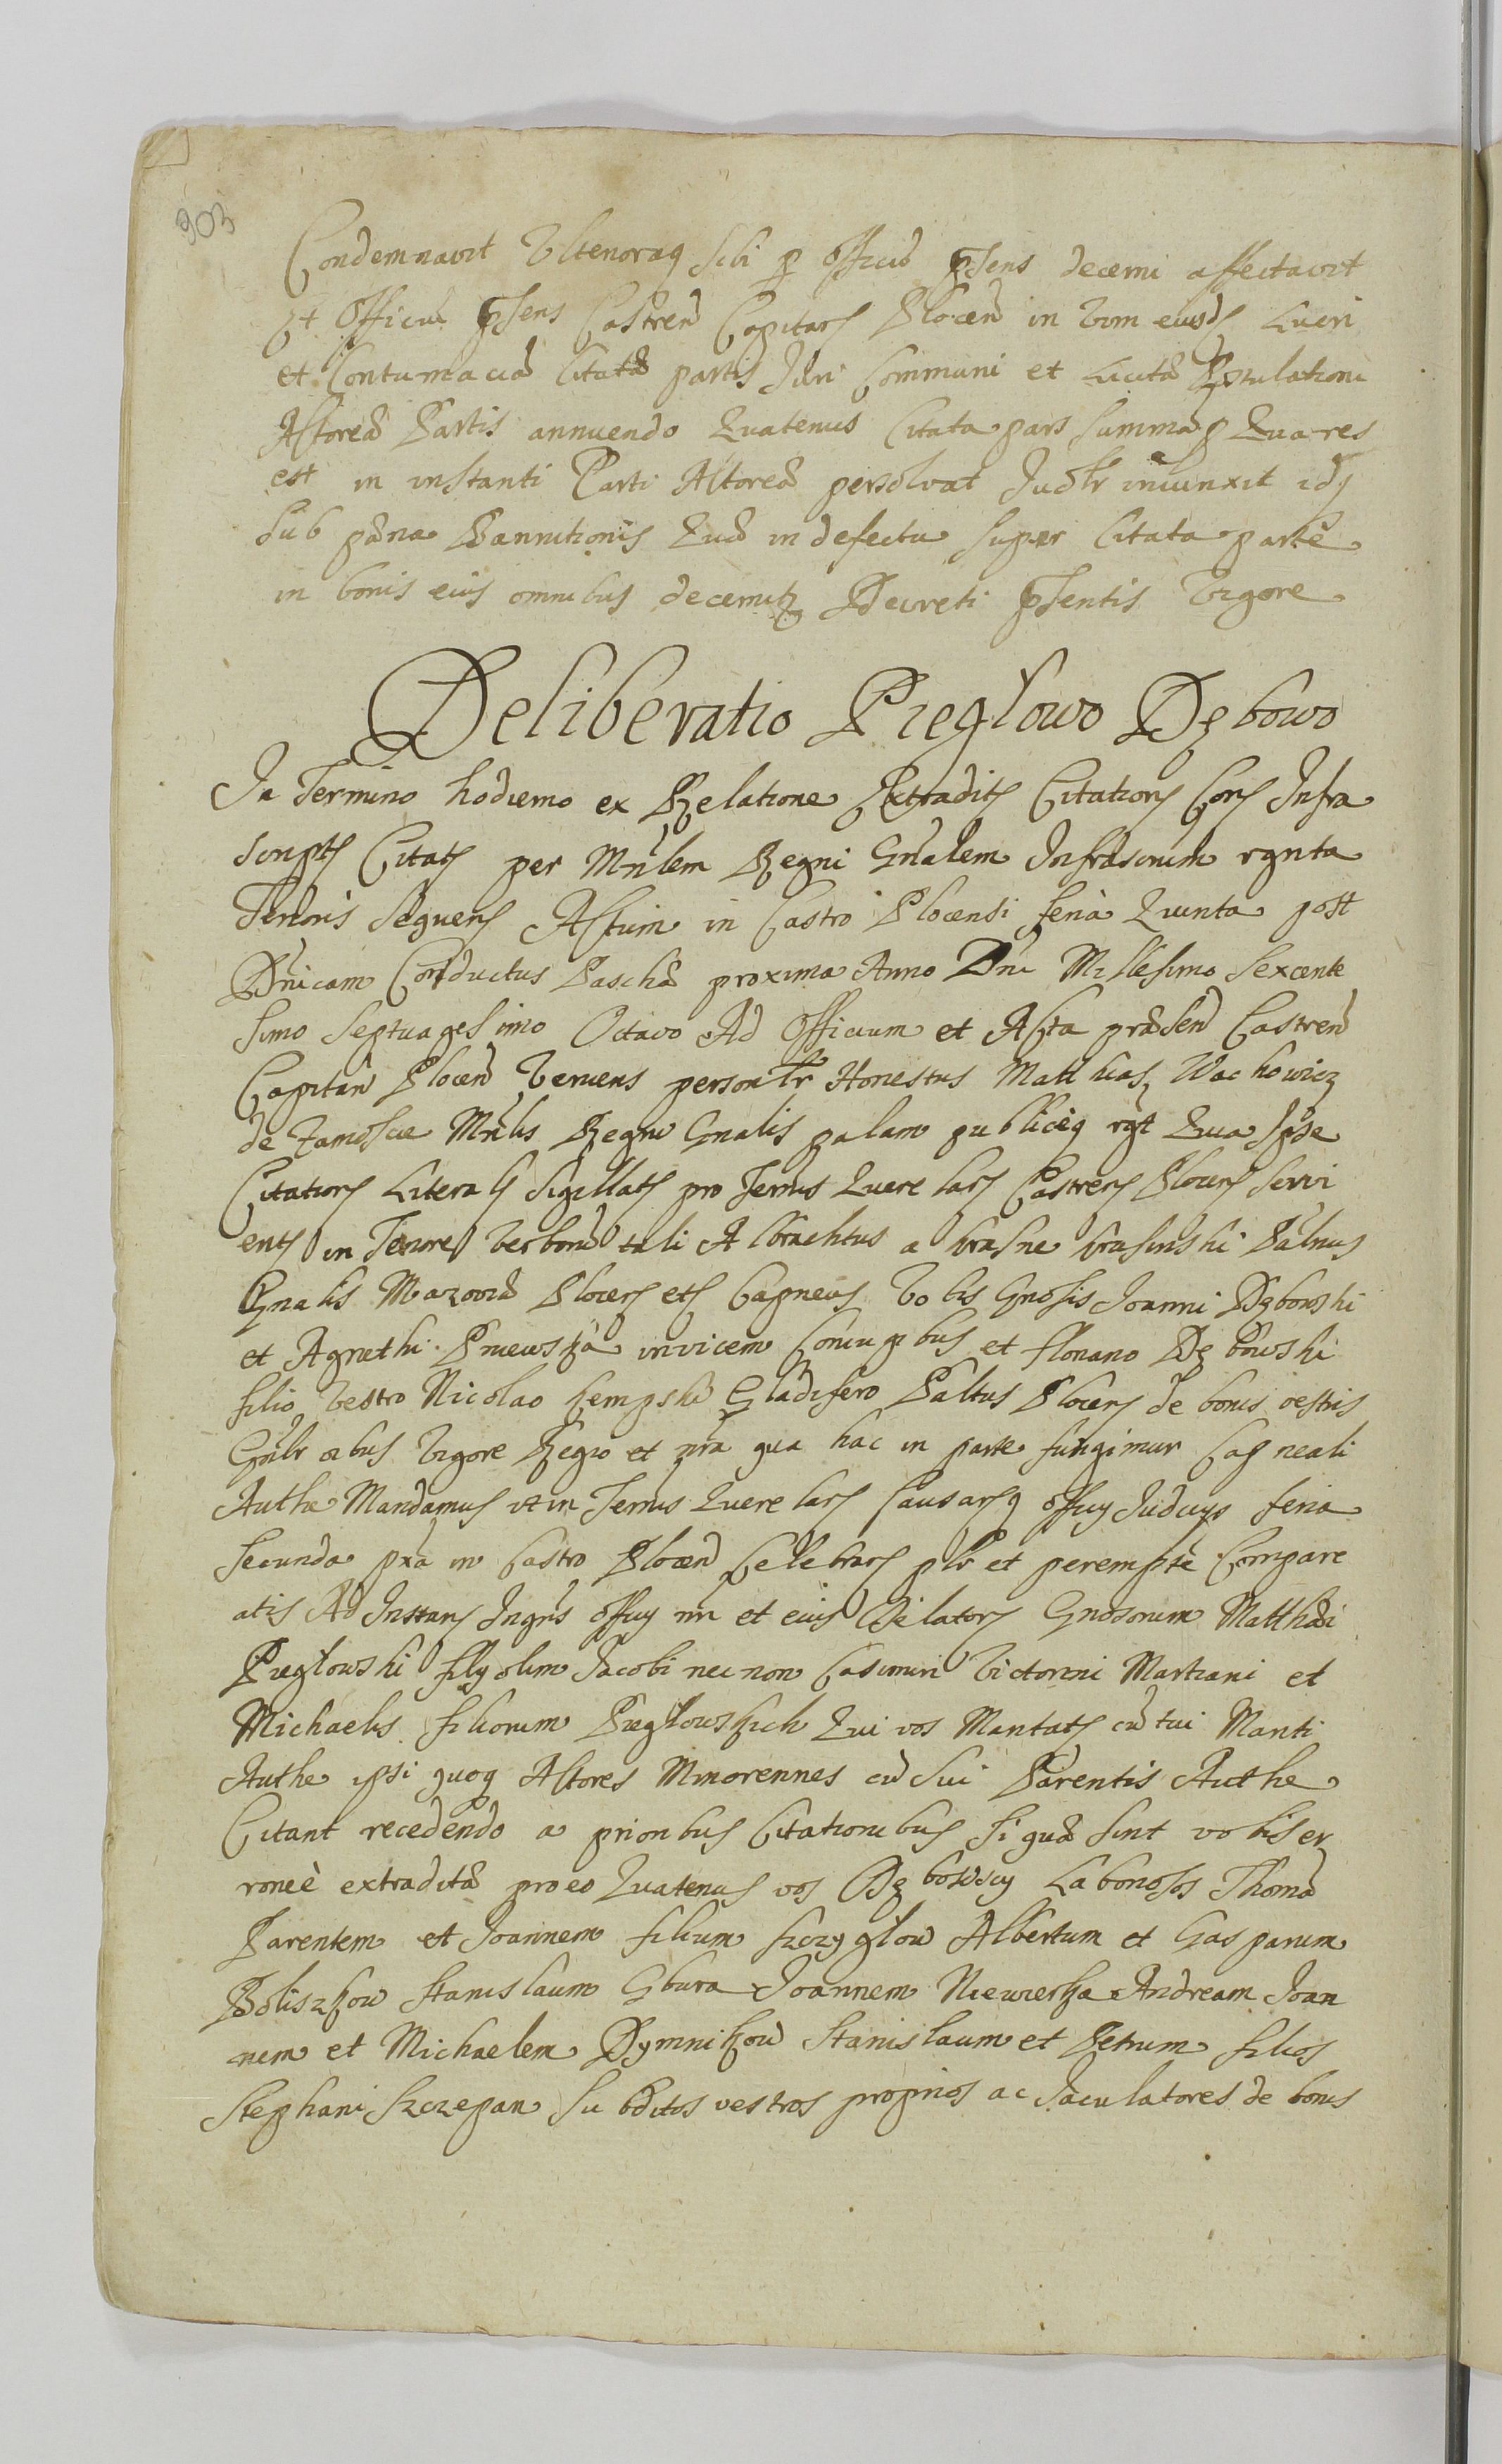 903
Condemnavit Ulteroraq sibi p Officiu pſens decerni affectavit
Et Officiu pſens Castren Capitan Plocen in Vim eiusd Lucri
et Contumaciæ Citatæ partis Juri Communi et Licitæ Postulationi
Actoreæ Partis annuendo Quatenus Citata pars Summa p Qua res
est in instanti Parti Actoreæ persolvat Judlr iniunxit idq
sub pæna Bannitionis Quæ in defectu super Citata parte
in bonis eius omnibus decernitz Decreti pſentis Vigore
Deliberatio Pieglowo Dębowo
In Termino hodierno ex Relatione Extradit Citation Cor Infra
script Citat per Mnlem Regni Gnalem Infrascrium rgnta
Tenoris Sequen Actum in Castro Plocensi feria Quinta post
Dnicam Conductus Paschæ proxima Anno Dni Millesimo Sexcente
simo Septuagesimo Octavo Ad Officium et Acta præsen Castren
Capitan Plocen Veniens personlr Honestus Matthias Wachowicz
de Zamoscie Mnlis Regni Gnalis palam publiceq rgt Qua Ipse
Citation Literal Sigillat pro Termis Querelar Castren Plocen servi
ent in Tenore Verborū tali Albrachtus a Krasne Krasinski Palnus
Gnalis Mazoviæ Plocen et Capneus Vobis Gnosis Joanni Dębowski
et Agnethi Pniewska invicem Coniugbus et Floriano Dębowski
filio Vestro Nicolao Kempski Gladifero Paltus Plocen de bonis vestris
Gnlr oibus Vigore Regio et nra qua hac in parte fungimur Capneali
Authe Mandamus ut in Termis Querelar Causarq Officy Judicys feria
Secunda pxa in Castro Plocen Celebran plr et perempte Compare
atis Ad Instan Ingris Officy nri et eius Delator Gnosorum Matthæi
Pieglowski fily olim Jacobi necnon Casimiri Victorini Martiani et
Michaelis filiorum Pieglowskich Qui vos Mantat cū tui Manti
Authe ipsi quoq Actores Minorennes cū sui Parentis Authe
Citant recedendo a prioribus Citationibus si quæ sint vobis er
roneè extraditæ pro eo Quatenus vos Dębowscy Laboriosos Thomā
Parentem et Joannem filium Szczyglow Albertum et Gasparum
Boliszkow Stanislaum Gbura Joannem Niewieska Andream Joan
nem et Michaelem Dymnikow Stanislaum et Petrum filios
Stephani Szczepan Subditos vestros proprios ac Jaculatores de bonis